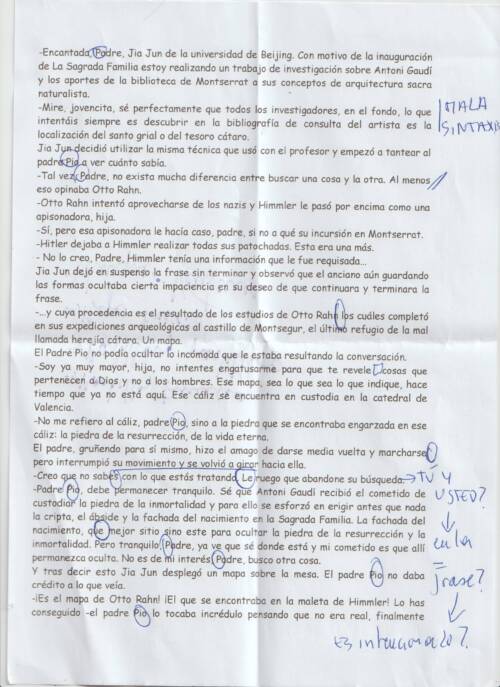 -Encantada, Padre, Jia Jun de la universidad de Beijing. Con motivo de la inauguración
de La Sagrada Familia estoy realizando un trabajo de investigación sobre Antoni Gaudí
y los aportes de la biblioteca de Montserrat a sus conceptos de arquitectura sacra
naturalista.
-Mire, jovencita, sé perfectamente que todos los investigadores, en el fondo, lo que
intentáis siempre es descubrir en la bibliografía de consulta del artista es la
localización del santo grial o del tesoro cátaro.
MALA
SINTAXIS
Jia Jun decidió utilizar la misma técnica que usó con el profesor y empezó a tantear al
padre Pio a ver cuánto sabía.
-Tal vez, Padre, no exista mucha diferencia entre buscar una cosa y la otra. Al menos
eso opinaba Otto Rahn.
-Otto Rahn intentó aprovecharse de los nazis y Himmler le pasó por encima como una
apisonadora, hija.
-Sí, pero esa apisonadora le hacía caso, padre, si no a qué su incursión en Montserrat.
-Hitler dejaba a Himmler realizar todas sus patochadas. Esta era una más.
- No lo creo, Padre, Himmler tenía una información que le fue requisada...
Jia Jun dejó en suspenso la frase sin terminar y observó que el anciano aún guardando
las formas ocultaba cierta impaciencia en su deseo de que continuara y terminara la
frase.
-...y cuya procedencia es el resultado de los estudios de Otto Rahn los cuáles completó
en sus expediciones arqueológicas al castillo de Montsegur, el último refugio de la mal
llamada herejía cátara. Un mapa.
El Padre Pio no podía ocultar lo incómoda que le estaba resultando la conversación.
-Soy ya muy mayor, hija, no intentes engatusarme para que te revele cosas que
pertenecen a Dios y no a los hombres. Ese mapa, sea lo que sea lo que indique, hace
tiempo que ya no está aquí. Ese cáliz sé encuentra en custodia en la catedral de
Valencia.
-No me refiero al cáliz, padre Pio, sino a la piedra que se encontraba engarzada en ese
cáliz: la piedra de la resurrección, de la vida eterna.
El padre, gruñendo para sí mismo, hizo el amago de darse media vuelta y marcharse
pero interrumpió su movimiento y se volvió a girar hacia ella.
-Creo que no sabes con lo que estás tratando. Le ruego que abandone su búsqueda. → TÚ Y
USTED?
-Padre Pio, debe permanecer tranquilo. Sé que Antoni Gaudí recibió el cometido de
custodiar la piedra de inmortalidad y para ello se esforzó en erigir antes que nada
la cripta, el ábside y la fachada del nacimiento en la Sagrada Familia. La fachada del
nacimiento, que mejor sitio sino este para ocultar la piedra de la resurrección y la
inmortalidad. Pero tranquilo Padre, ya ve que sé donde está y mi cometido es que allí
permanezca oculta. No es de mi interés Padre, busco otra cosa.
en la
= frase?
Y tras decir esto Jia Jun desplegó un mapa sobre la mesa. El padre Pio no daba
crédito a lo que veía.
-¡Es el mapa de Otto Rahn! ¡El que se encontraba en la maleta de Himmler! Lo has
conseguido -el padre Pio lo tocaba incrédulo pensando que no era real, finalmente
Es intencionado?